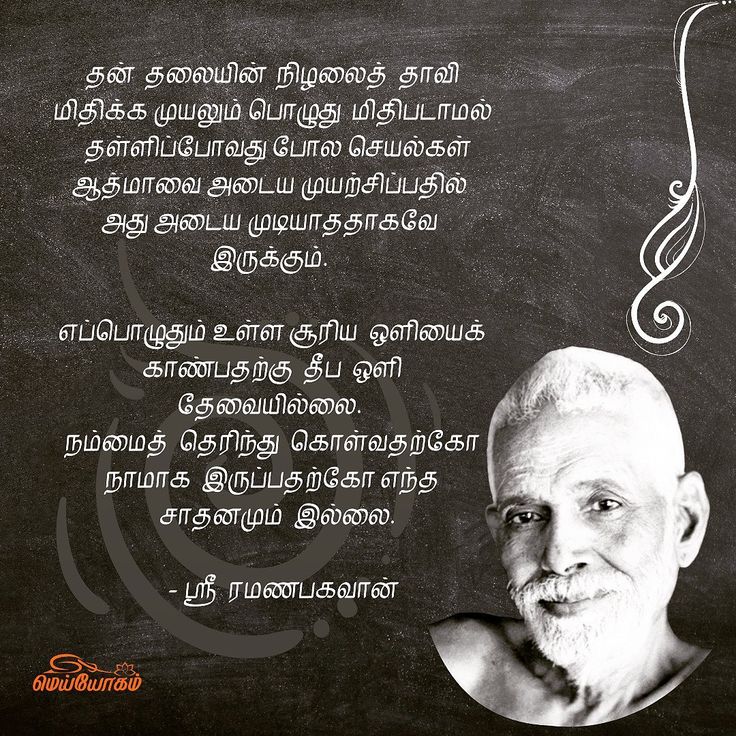 தன் தலையின் நிழலைத் தாவி
மிதிக்க முயலும் பொழுது மிதிபடாமல்
தள்ளிப்போவது போல செயல்கள்
ஆத்மாவை அடைய முயற்சிப்பதில்
அது அடைய முடியாததாகவே
இருக்கும்.
எப்பொழுதும் உள்ள சூரிய ஒளியைக்
காண்பதற்கு தீப ஒளி
தேவையில்லை.
நம்மைத் தெரிந்து கொள்வதற்கோ
நாமாக இருப்பதற்கோ எந்த
சாதனமும் இல்லை.
- ஸ்ரீ ரமணபகவான்
மெய்யோகம்